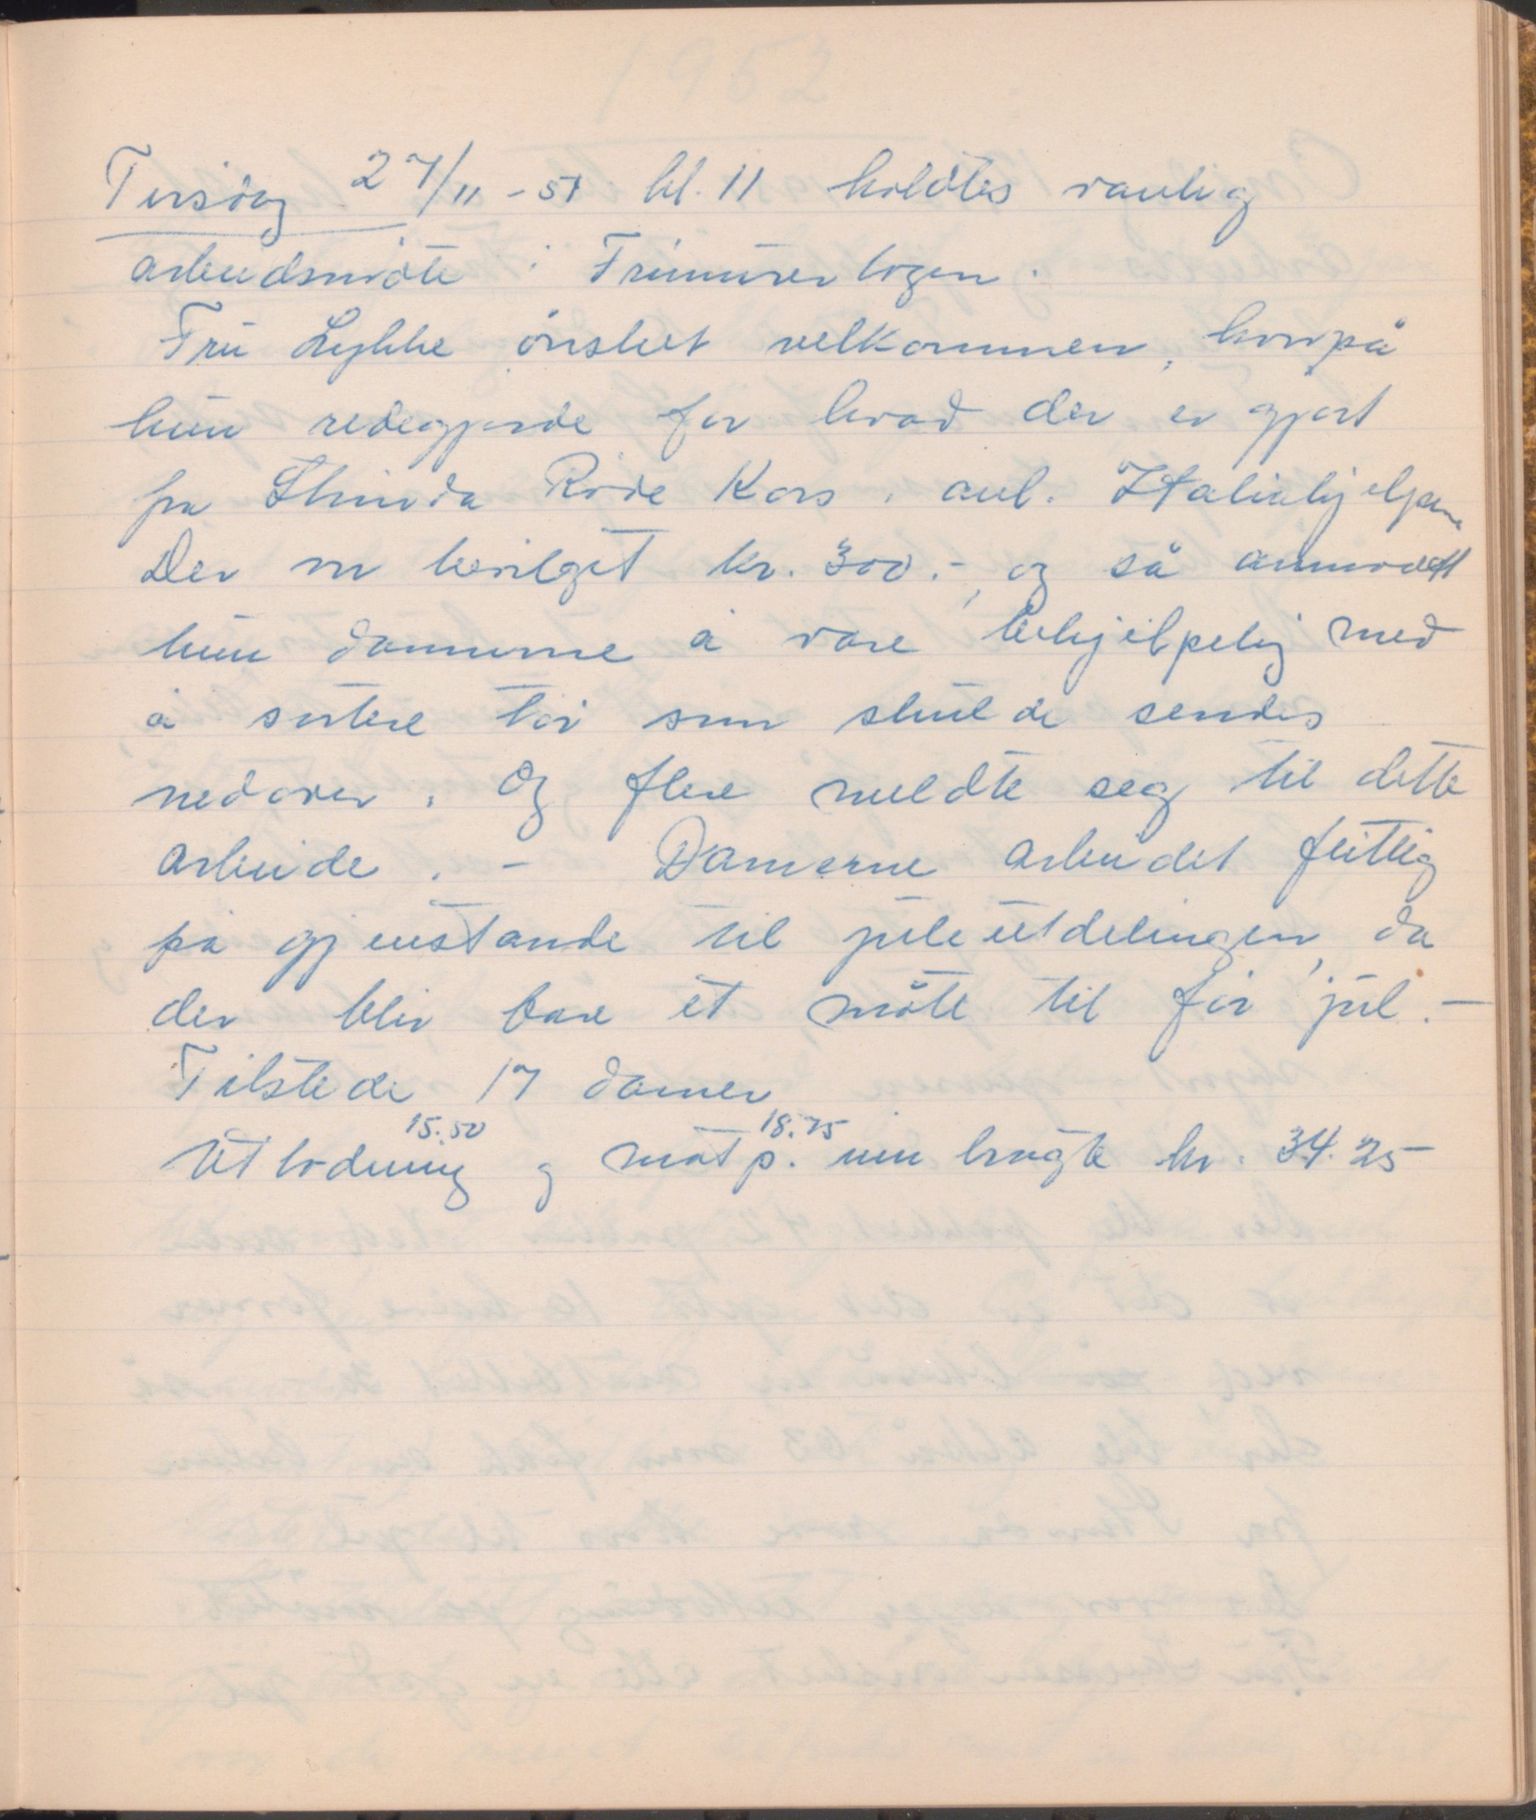 Tirsdag 27/11 - 51 kl. 11 holdtes vanlig
arbeidsmöte i Frimurerlogen.
Fru Lykke önsket velkommen, hvorpå
hun redegjorde for hvad der er gjort
fra Strinda Röde Kors. anl. Italiahjelpen
Der er bevilget kr. 300.-, og så anmodet
hun damerne å være behjelpelig med
å sortere töi som skulde sendes
nedover. Og flere meldte seg til dette
arbeide. - Damerne arbeidet flittig
på gjenstande til juleutdelingen, da
der blir bare et möte til för jul. -
Tilstede 17 damer
15.50 18.75
Utlodning og matp. inn bragte kr. 34.25